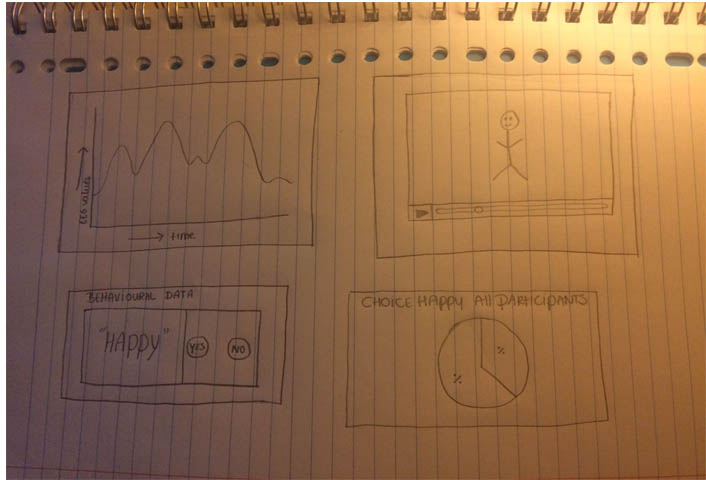 EEG values
time
BEHAVIOURAL DATA
"HAppy"
YES
NO
CHOICE HAPPY All PARTICIPANTS
%
%